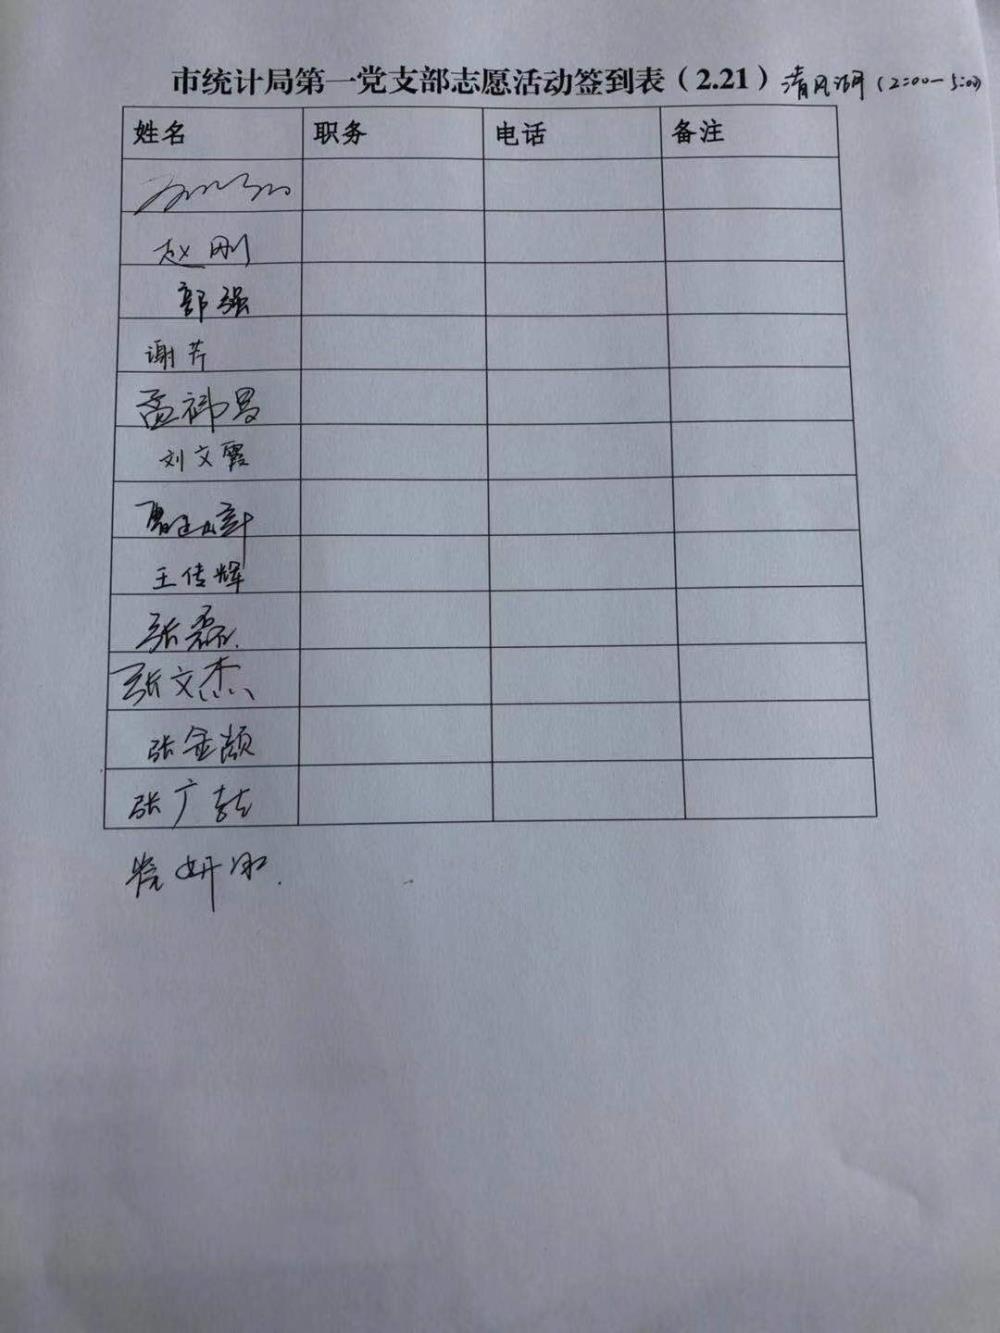 市统计局第一党支部志愿活动签到表（2.21）清风湖（2:00—5:00）
姓名 职务 电话 备注
赵刚
部强
谢芹
孟祎昌
刘文霞
王传辉
张磊
张文杰
张金颢
张广喆